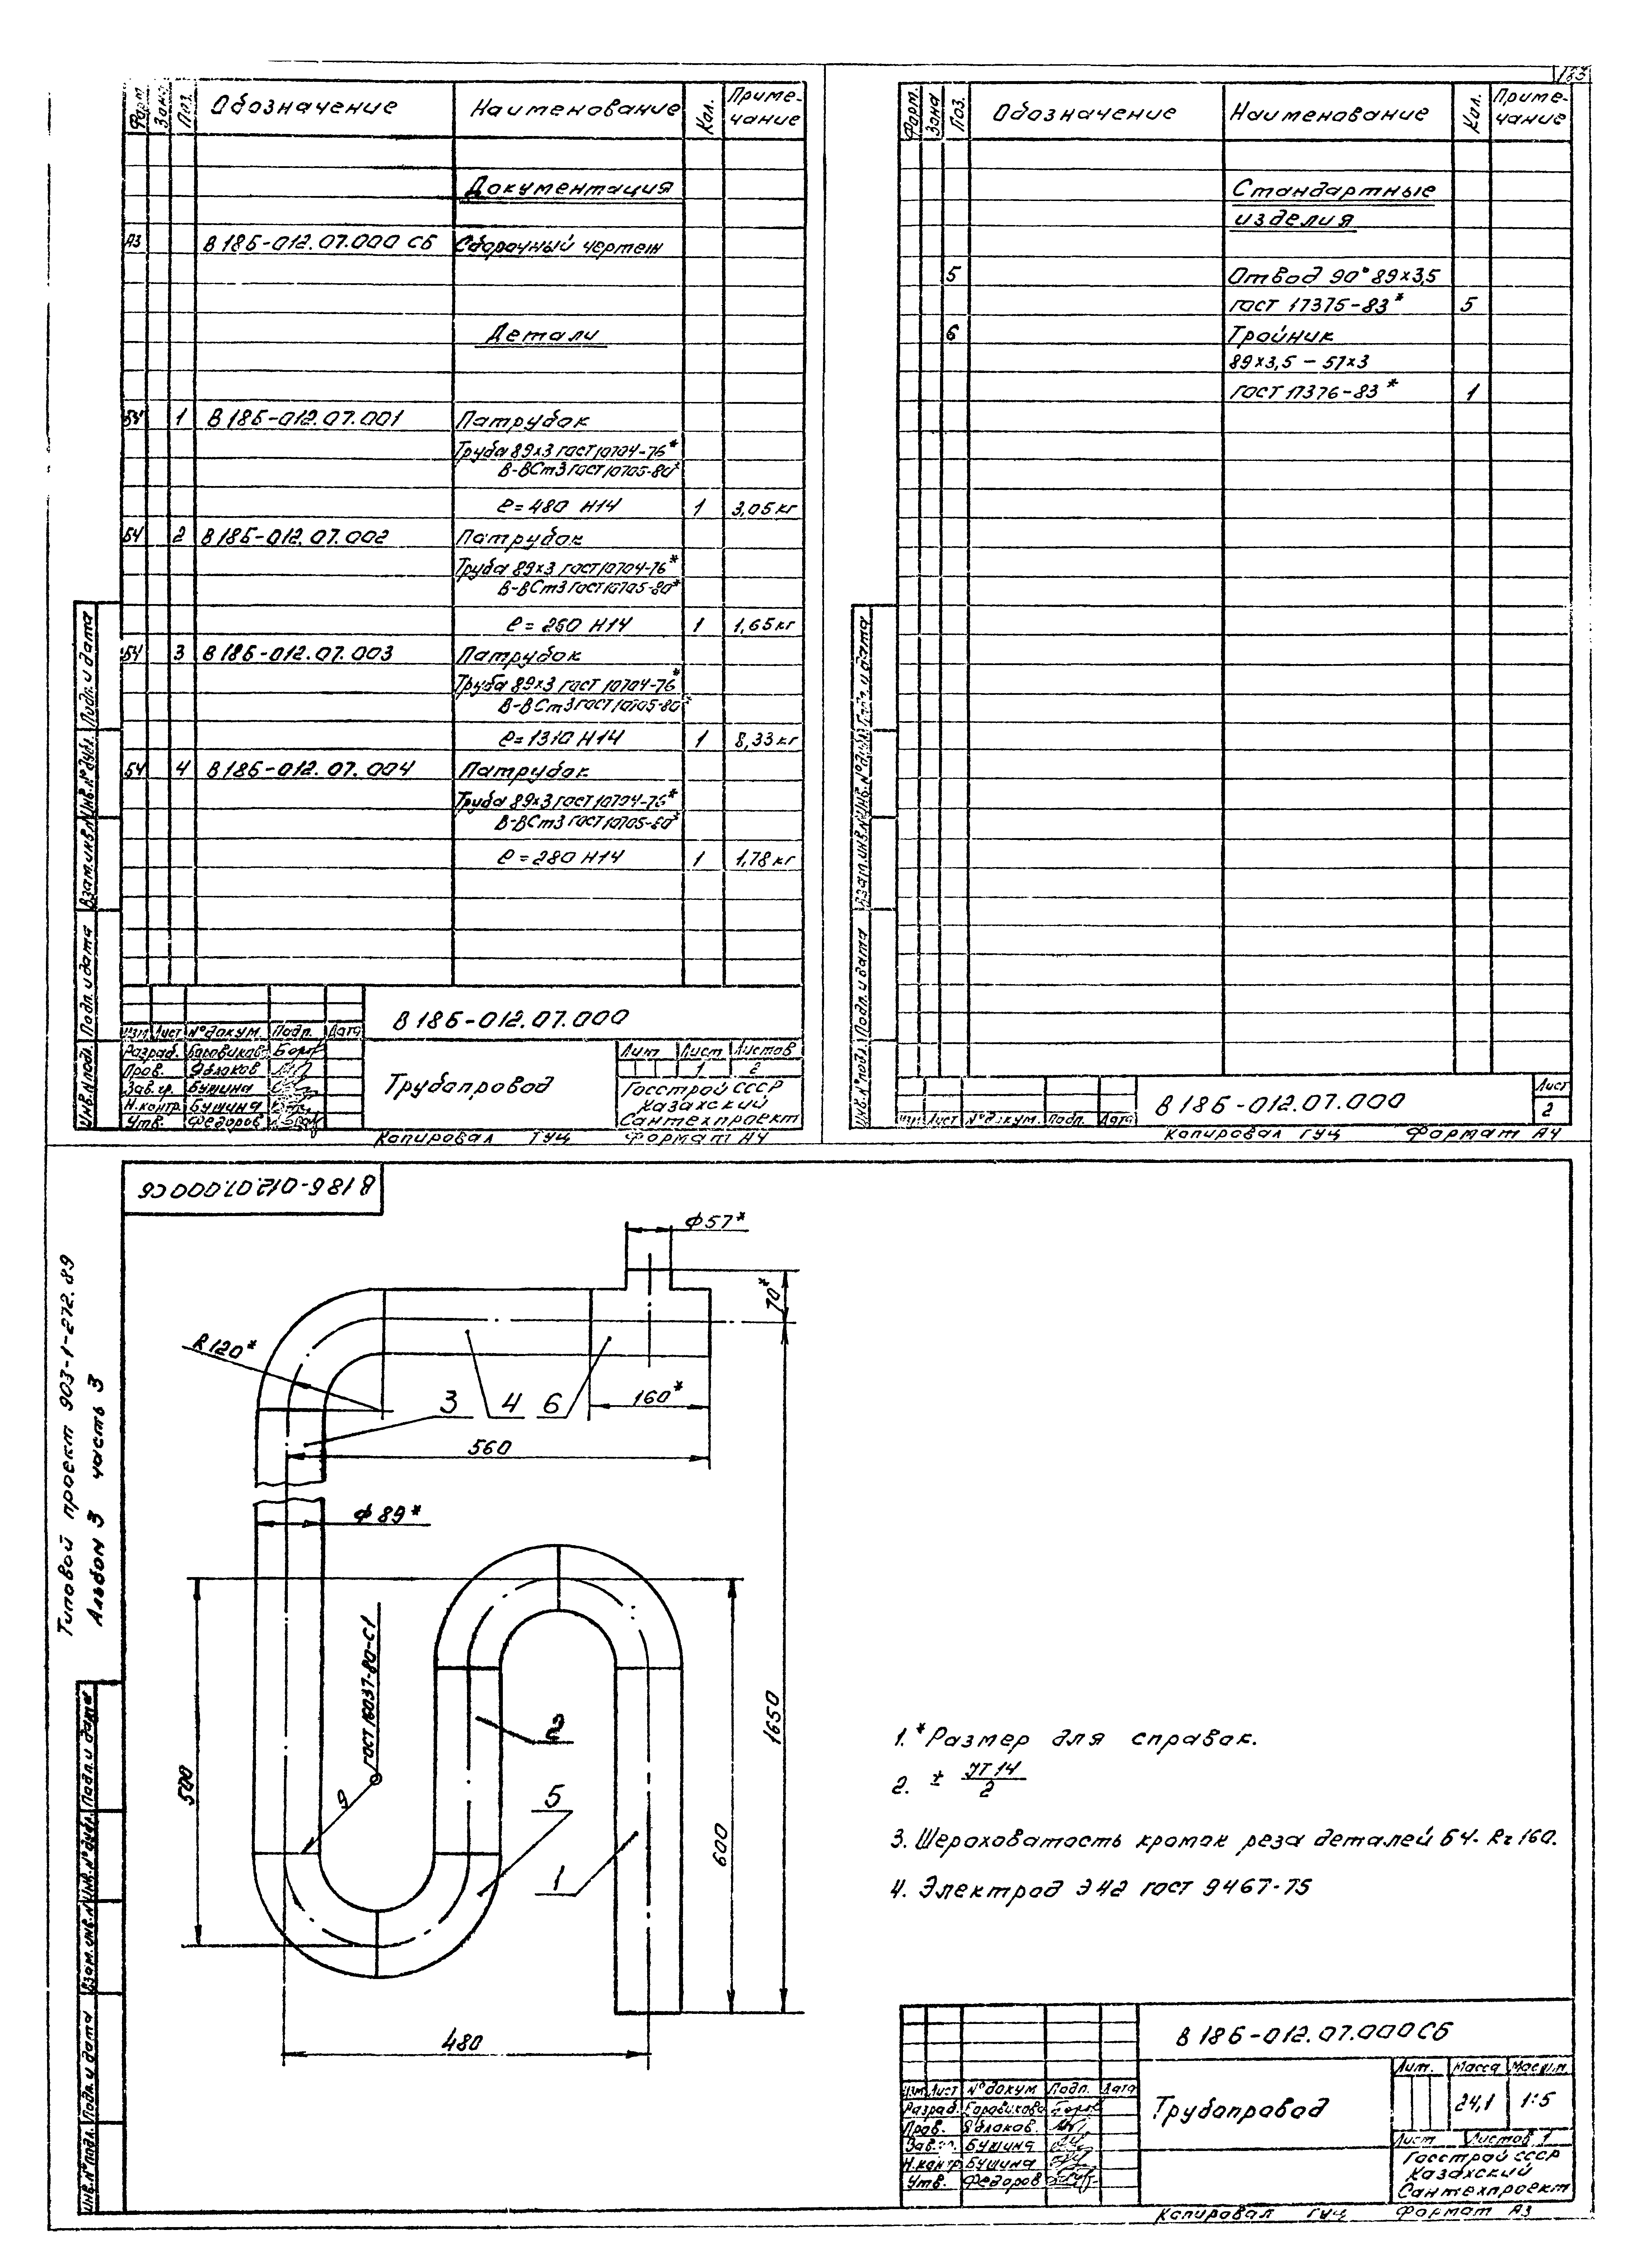 183
Форм. Зона Поз. Обозначение Наименование Кол. Приме-
чание
Документация
А3 В 186-012.07.000 СБ Сборочный чертеж
Детали
БЧ 1 В 186-012.07.001 Патрубок
Труба 89х3 ГОСТ 10704-76*
В-ВСт3 ГОСТ 10705-80*
ℓ=480 Н14 1 3,05кг
БЧ 2 В 186-012.07.002 Патрубок
Труба 89х3 ГОСТ 10704-76*
В-ВСт3 ГОСТ 10705-80*
ℓ=260 Н14 1 1,65кг
БЧ 3 В 186-012.07.003 Патрубок
Труба 89х3 ГОСТ 10704-76*
В-ВСт3 ГОСТ 10705-80*
ℓ=1310 Н14 1 8,33кг
БЧ 4 В 186-012.07.004 Патрубок
Труба 89х3 ГОСТ 10704-76*
В-ВСт3 ГОСТ 10705-80*
ℓ=280 Н14 1 1,78кг
Инв.№подл. Подп. и дата Взам.инв.№ Инв.№дубл. Подп. и дата
В 186-012.07.000
Изм Лист №докум. Подп. Дата
Разраб. Боровикова
Пров. Яблоков
Зав.гр. Бушина
Н.контр. Бушина
Утв. Федоров
Трубопровод
Лит Лист Листов
1 2
Госстрой СССР
Казахский
Сантехпроект
Копировал ГУЦ Формат А4
Форм. Зона Поз. Обозначение Наименование Кол. Приме-
чание
Стандартные
изделия
5 Отвод 90° 89х3,5
ГОСТ 17375-83* 5
6 Тройник
89х3,5 – 57х3
ГОСТ 17376-83* 1
Инв.№подл. Подп. и дата Взам.инв.№ Инв.№дубл. Подп. и дата
Изм Лист №докум. Подп. Дата
В 186-012.07.000
Лист
2
Копировал ГУЦ Формат А4
В 186-012.07.000 СБ
Типовой проект 903-1-272.89
Альбом 3 часть 3
ϕ57*
70*
R120*
3 4 6
160*
560
ϕ89*
ГОСТ 16037-80-С1
9
500
2
5
1
600
1650
480
1. * Размер для справок.
2. ± JT14/2
3. Шероховатость кромок реза деталей БЧ- Rz 160.
4. Электрод Э42 ГОСТ 9467-75
Инв.№подл. Подп. и дата Взам.инв.№ Инв.№дубл. Подп. и дата
В 186-012.07.000СБ
Изм Лист №докум Подп. Дата
Разраб. Боровикова
Пров. Яблоков.
Зав.гр. Бушина
Н.контр Бушина
Утв. Федоров
Трубопровод
Лит. Масса Масшт.
24,1 1:5
Лист Листов 1
Госстрой СССР
Казахский
Сантехпроект
Копировал ГУЦ Формат А3